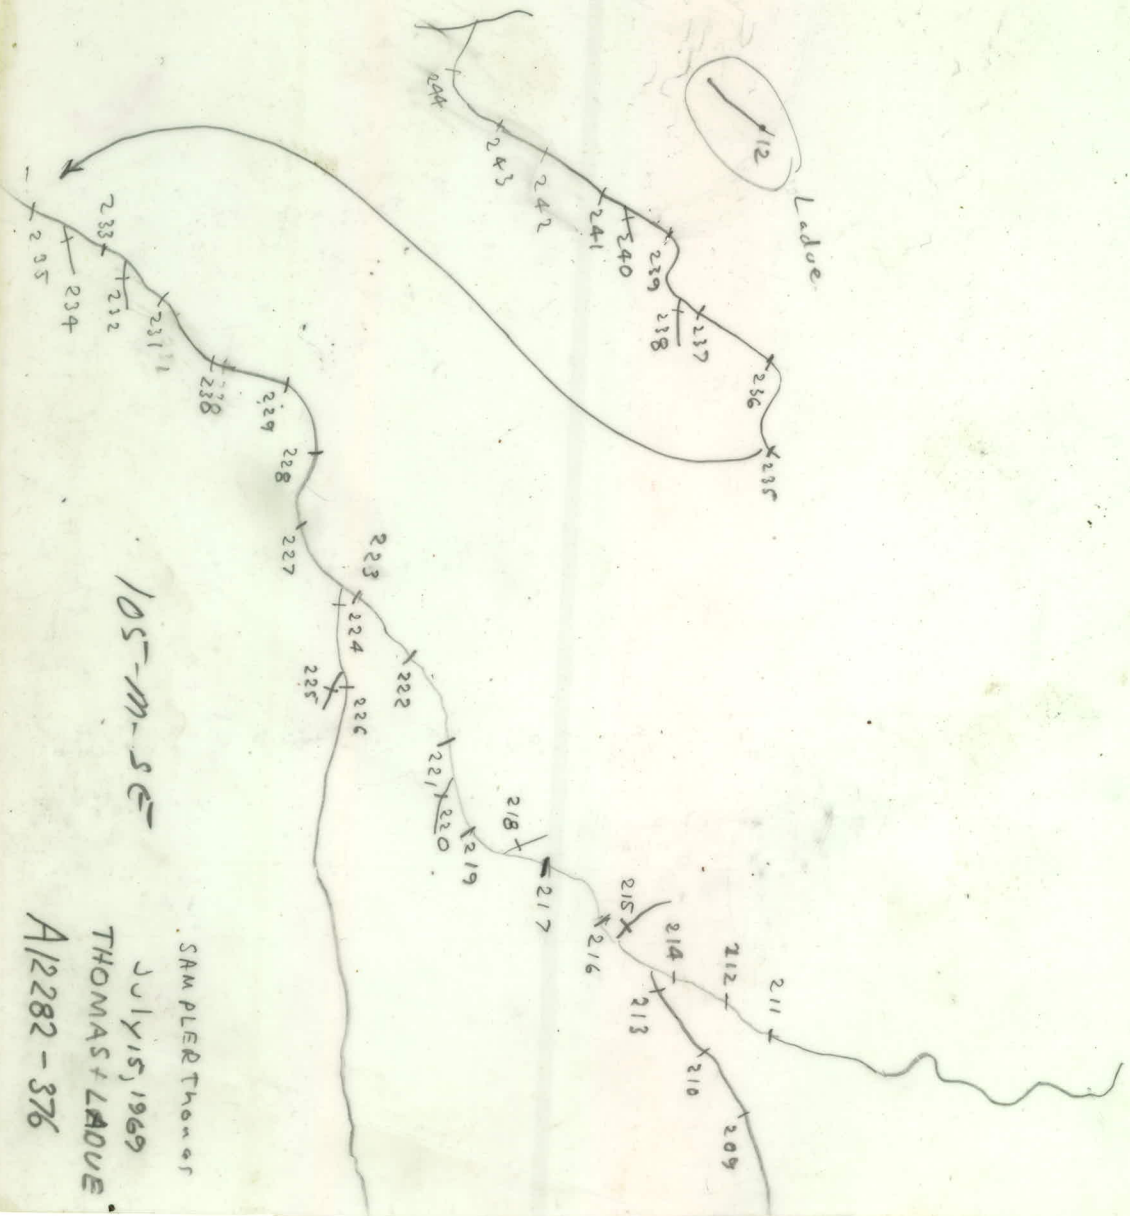 244
243
242
241
240
239
238
237
236
235
12
Ladue
235
234
233
232
231
238
229
228
227
223
224
225
226
222
221
220
219
218
217
216
215
214
213
212
211
210
209
105-M-SE
SAMPLER Thomas
July 15, 1969
THOMAS + LADUE
A12282-376